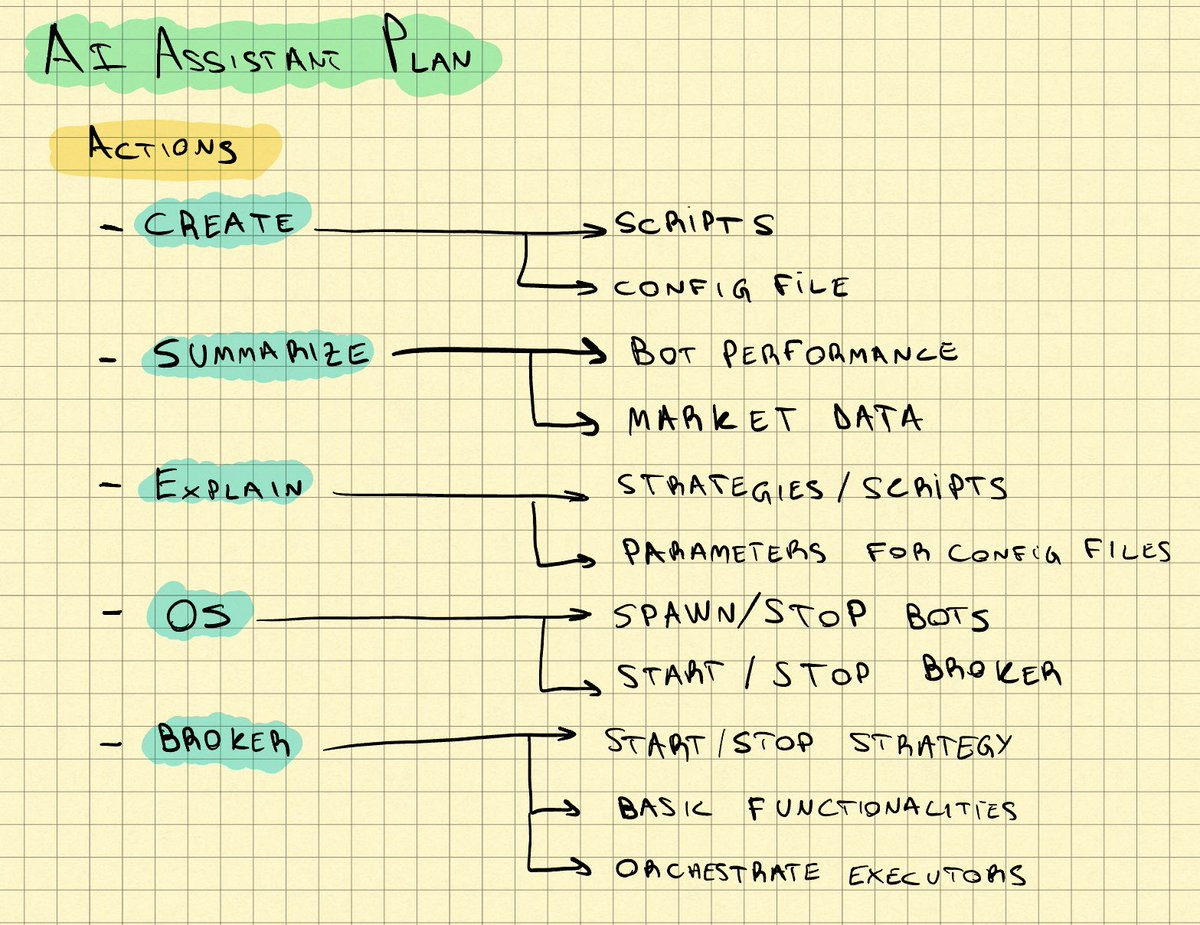 AI ASSISTANT PLAN
ACTIONS
- CREATE → SCRIPTS
→ CONFIG FILE
- SUMMARIZE → BOT PERFORMANCE
→ MARKET DATA
- EXPLAIN → STRATEGIES/SCRIPTS
→ PARAMETERS FOR CONFIG FILES
- OS → SPAWN/STOP BOTS
→ START/STOP BROKER
- BROKER → START/STOP STRATEGY
→ BASIC FUNCTIONALITIES
→ ORCHESTRATE EXECUTORS